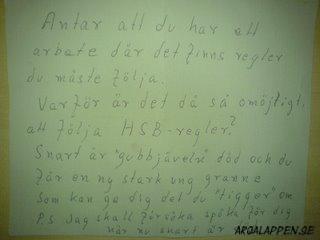 Antar att du har ett
arbete där det finns regler
du måste följa.
Varför är det då så omöjligt
att följa HSB-regler?
Snart är "gubbjäveln" död och du
får en ny stark ung granne
som kan ge dig det du "tigger" om
P.S Jag skall försöka spöka för dig
när nu snart är
ARGALAPPEN.SE